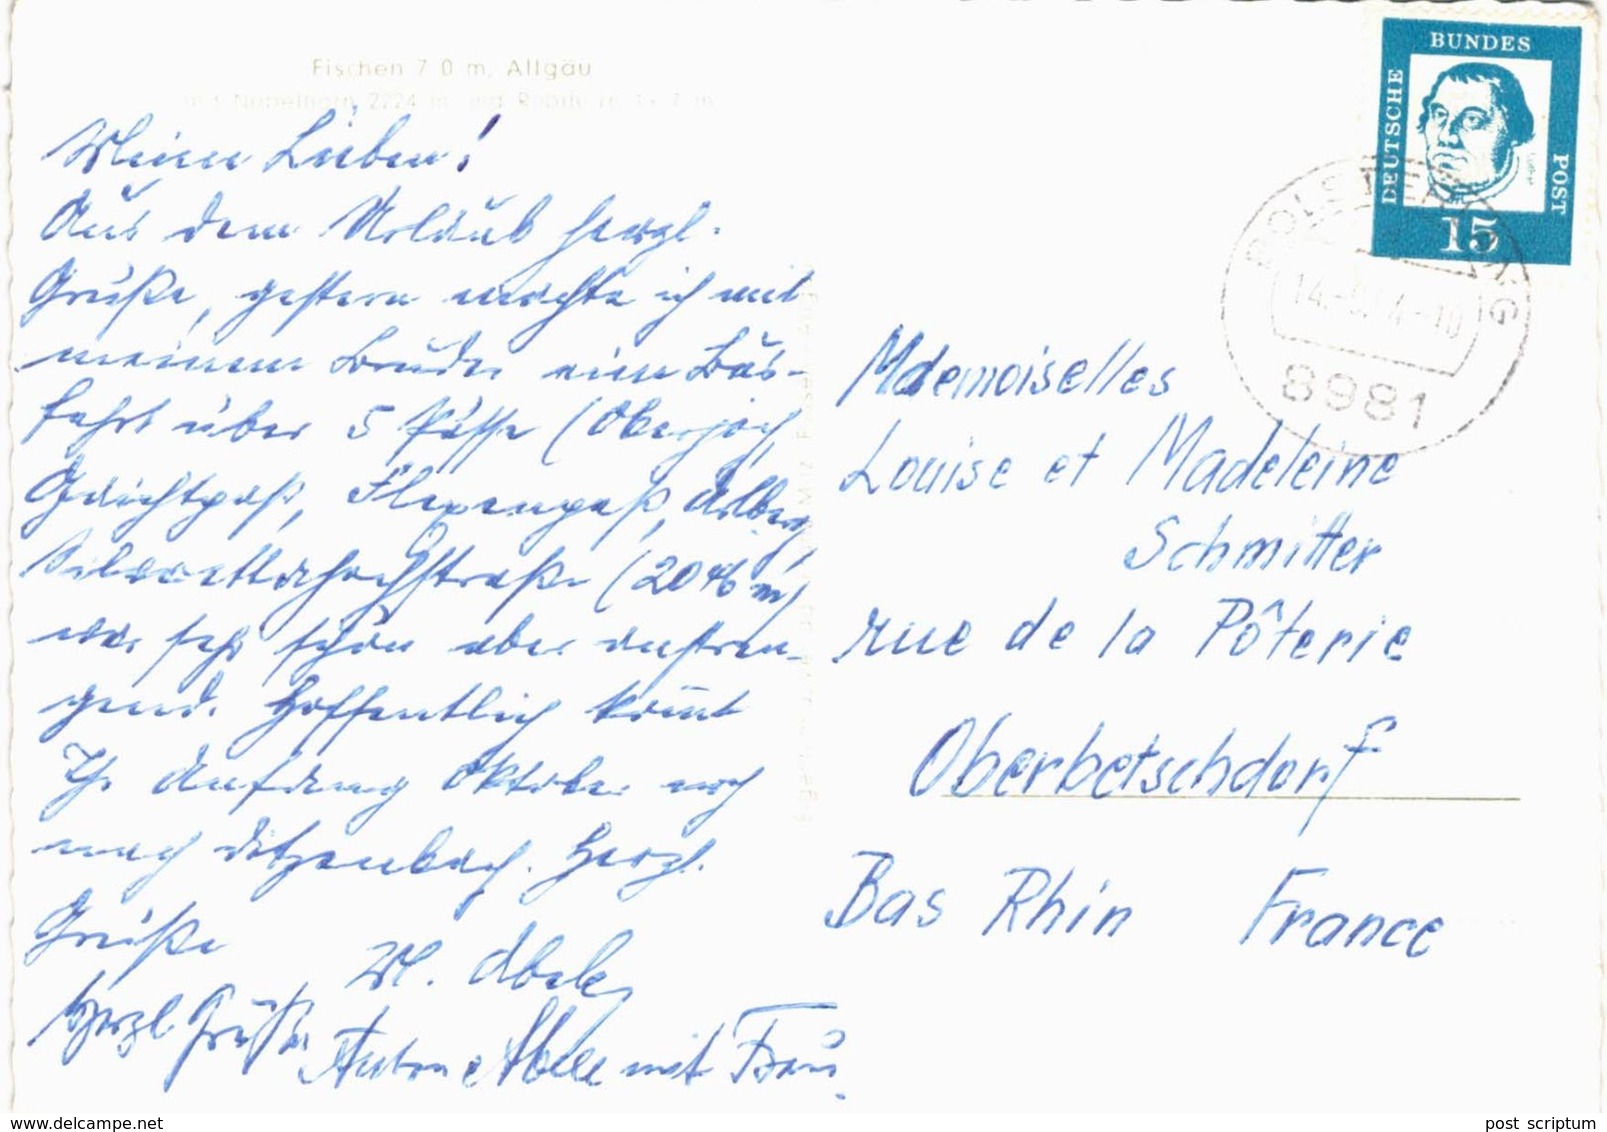 Fischen 7 0 m, Allgäu
Nebelhorn 2224 m und
Meine Lieben!
Aus dem Urlaub herzl.
Grüße, gestern machte ich mit
meinem Bruder eine Bus-
fahrt über 5 Pässe (Oberjoch,
Gaichtpaß, Flexenpaß, Arlberg,
Silvrettahochstraße (2046 m)
war sehr schön aber anstren-
gend. Hoffentlich könnt
Ihr Anfang Oktober noch
nach Ditzenbach. Herzl.
Grüße
M. Abele
Herzl Grüße
Anton Abele mit Frau.
DEUTSCHE BUNDES POST
15
BOLSTERLANG
8981
Mdemoiselles
Louise et Madeleine
Schmitter
rue de la Pôterie
Oberbetschdorf
Bas Rhin France
www.delcampe.net
post scriptum